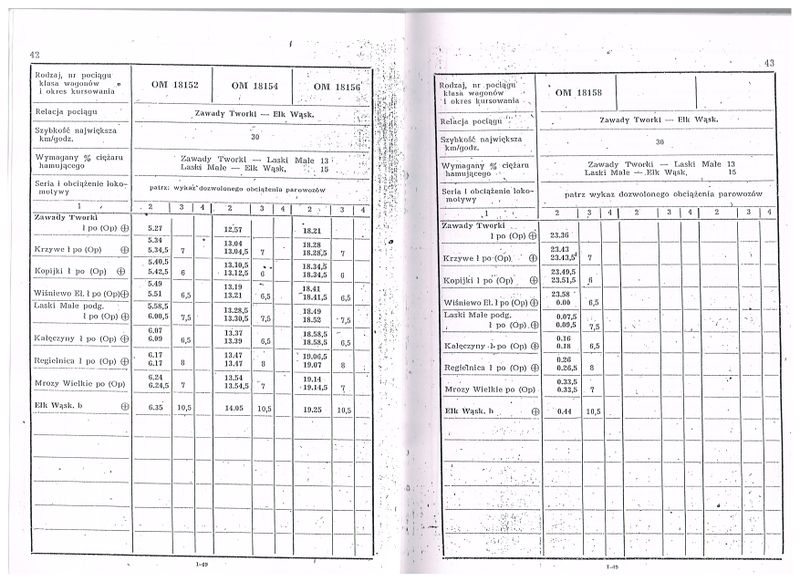 42
Rodzaj, nr pociągu
klasa wagonów
i okres kursowania
OM 18152 OM 18154 OM 18156
Relacja pociągu
Zawady Tworki — Ełk Wąsk.
Szybkość największa
km/godz.
30
Wymagany % ciężaru
hamującego
Zawady Tworki — Laski Małe 13
Laski Małe — Ełk Wąsk. 15
Seria i obciążenie loko-
motywy
patrz: wykaz dozwolonego obciążenia parowozów
1 2 3 4 2 3 4 2 3 4
Zawady Tworki
ł po (Op) ⊕ 5.27 12.57 18.21
5.34 13.04 18.28
Krzywe ł po (Op) ⊕ 5.34,5 7 13.04,5 7 18.28,5 7
5.40,5 13.10,5 18.34,5
Kopijki ł po (Op) ⊕ 5.42,5 6 13.12,5 6 18.34,5 6
5.49 13.19 18.41
Wiśniewo Eł. ł po (Op) ⊕ 5.51 6,5 13.21 6,5 18.41,5 6,5
Laski Małe podg. 5.58,5 13.28,5 18.49
ł po (Op) ⊕ 6.00,5 7,5 13.30,5 7,5 18.52 7,5
6.07 13.37 18.58,5
Kałęczyny ł po (Op) ⊕ 6.09 6,5 13.39 6,5 18.58,5 6,5
6.17 13.47 19.06,5
Regielnica ł po (Op) ⊕ 6.17 8 13.47 8 19.07 8
6.24 13.54 19.14
Mrozy Wielkie po (Op) 6.24,5 7 13.54,5 7 19.14,5 7
Ełk Wąsk. b ⊕ 6.35 10,5 14.05 10,5 19.25 10,5
1-49
43
Rodzaj, nr pociągu
klasa wagonów
i okres kursowania
OM 18158
Relacja pociągu
Zawady Tworki — Ełk Wąsk.
Szybkość największa
km/godz.
30
Wymagany % ciężaru
hamującego
Zawady Tworki — Laski Małe 13
Laski Małe — Ełk Wąsk. 15
Seria i obciążenie loko-
motywy
patrz wykaz dozwolonego obciążenia parowozów
1 2 3 4 2 3 4 2 3 4
Zawady Tworki
ł po (Op) ⊕ 23.36
23.43
Krzywe ł po (Op) ⊕ 23.43,5 7
23.49,5
Kopijki ł po (Op) ⊕ 23.51,5 6
23.58
Wiśniewo Eł. ł po (Op) ⊕ 0.00 6,5
Laski Małe podg. 0.07,5
ł po (Op) ⊕ 0.09,5 7,5
0.16
Kałęczyny ł po (Op) ⊕ 0.18 6,5
0.26
Regielnica ł po (Op) ⊕ 0.26,5 8
0.33,5
Mrozy Wielkie po (Op) 0.33,5 7
Ełk Wąsk. b ⊕ 0.44 10,5
1-49